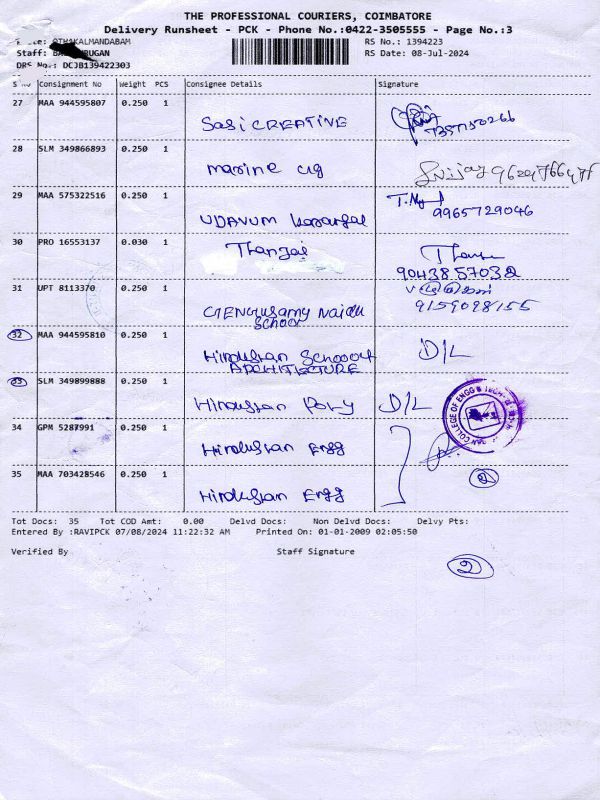 THE PROFESSIONAL COURIERS, COIMBATORE
Delivery Runsheet - PCK - Phone No.:0422-3505555 - Page No.:3
OTHAKALMANDABAM
RS No.: 1394223
Staff:
RS Date: 08-Jul-2024
DRS No.: DCJB139422303
S No Consignment No Weight PCS Consignee Details Signature
27 MAA 944595807 0.250 1 Sasi CREATIVE
28 SLM 349866893 0.250 1 marine
29 MAA 575322516 0.250 1 UDAVUM Karangal 9965729046
30 PRO 16553137 0.030 1 Thangai
9043857032
31 UPT 8113370 0.250 1 9159098155
Naidu
School
32 MAA 944595810 0.250 1 Hindustan School of D/L
ARCHITECTURE
33 SLM 349899888 0.250 1 Hindustan Poly D/L
34 GPM 5287991 0.250 1 Hindustan Engg
35 MAA 703428546 0.250 1 Hindustan Engg
2
Tot Docs: 35 Tot COD Amt: 0.00 Delvd Docs: Non Delvd Docs: Delvy Pts:
Entered By :RAVIPCK 07/08/2024 11:22:32 AM Printed On: 01-01-2009 02:05:50
Verified By Staff Signature
2